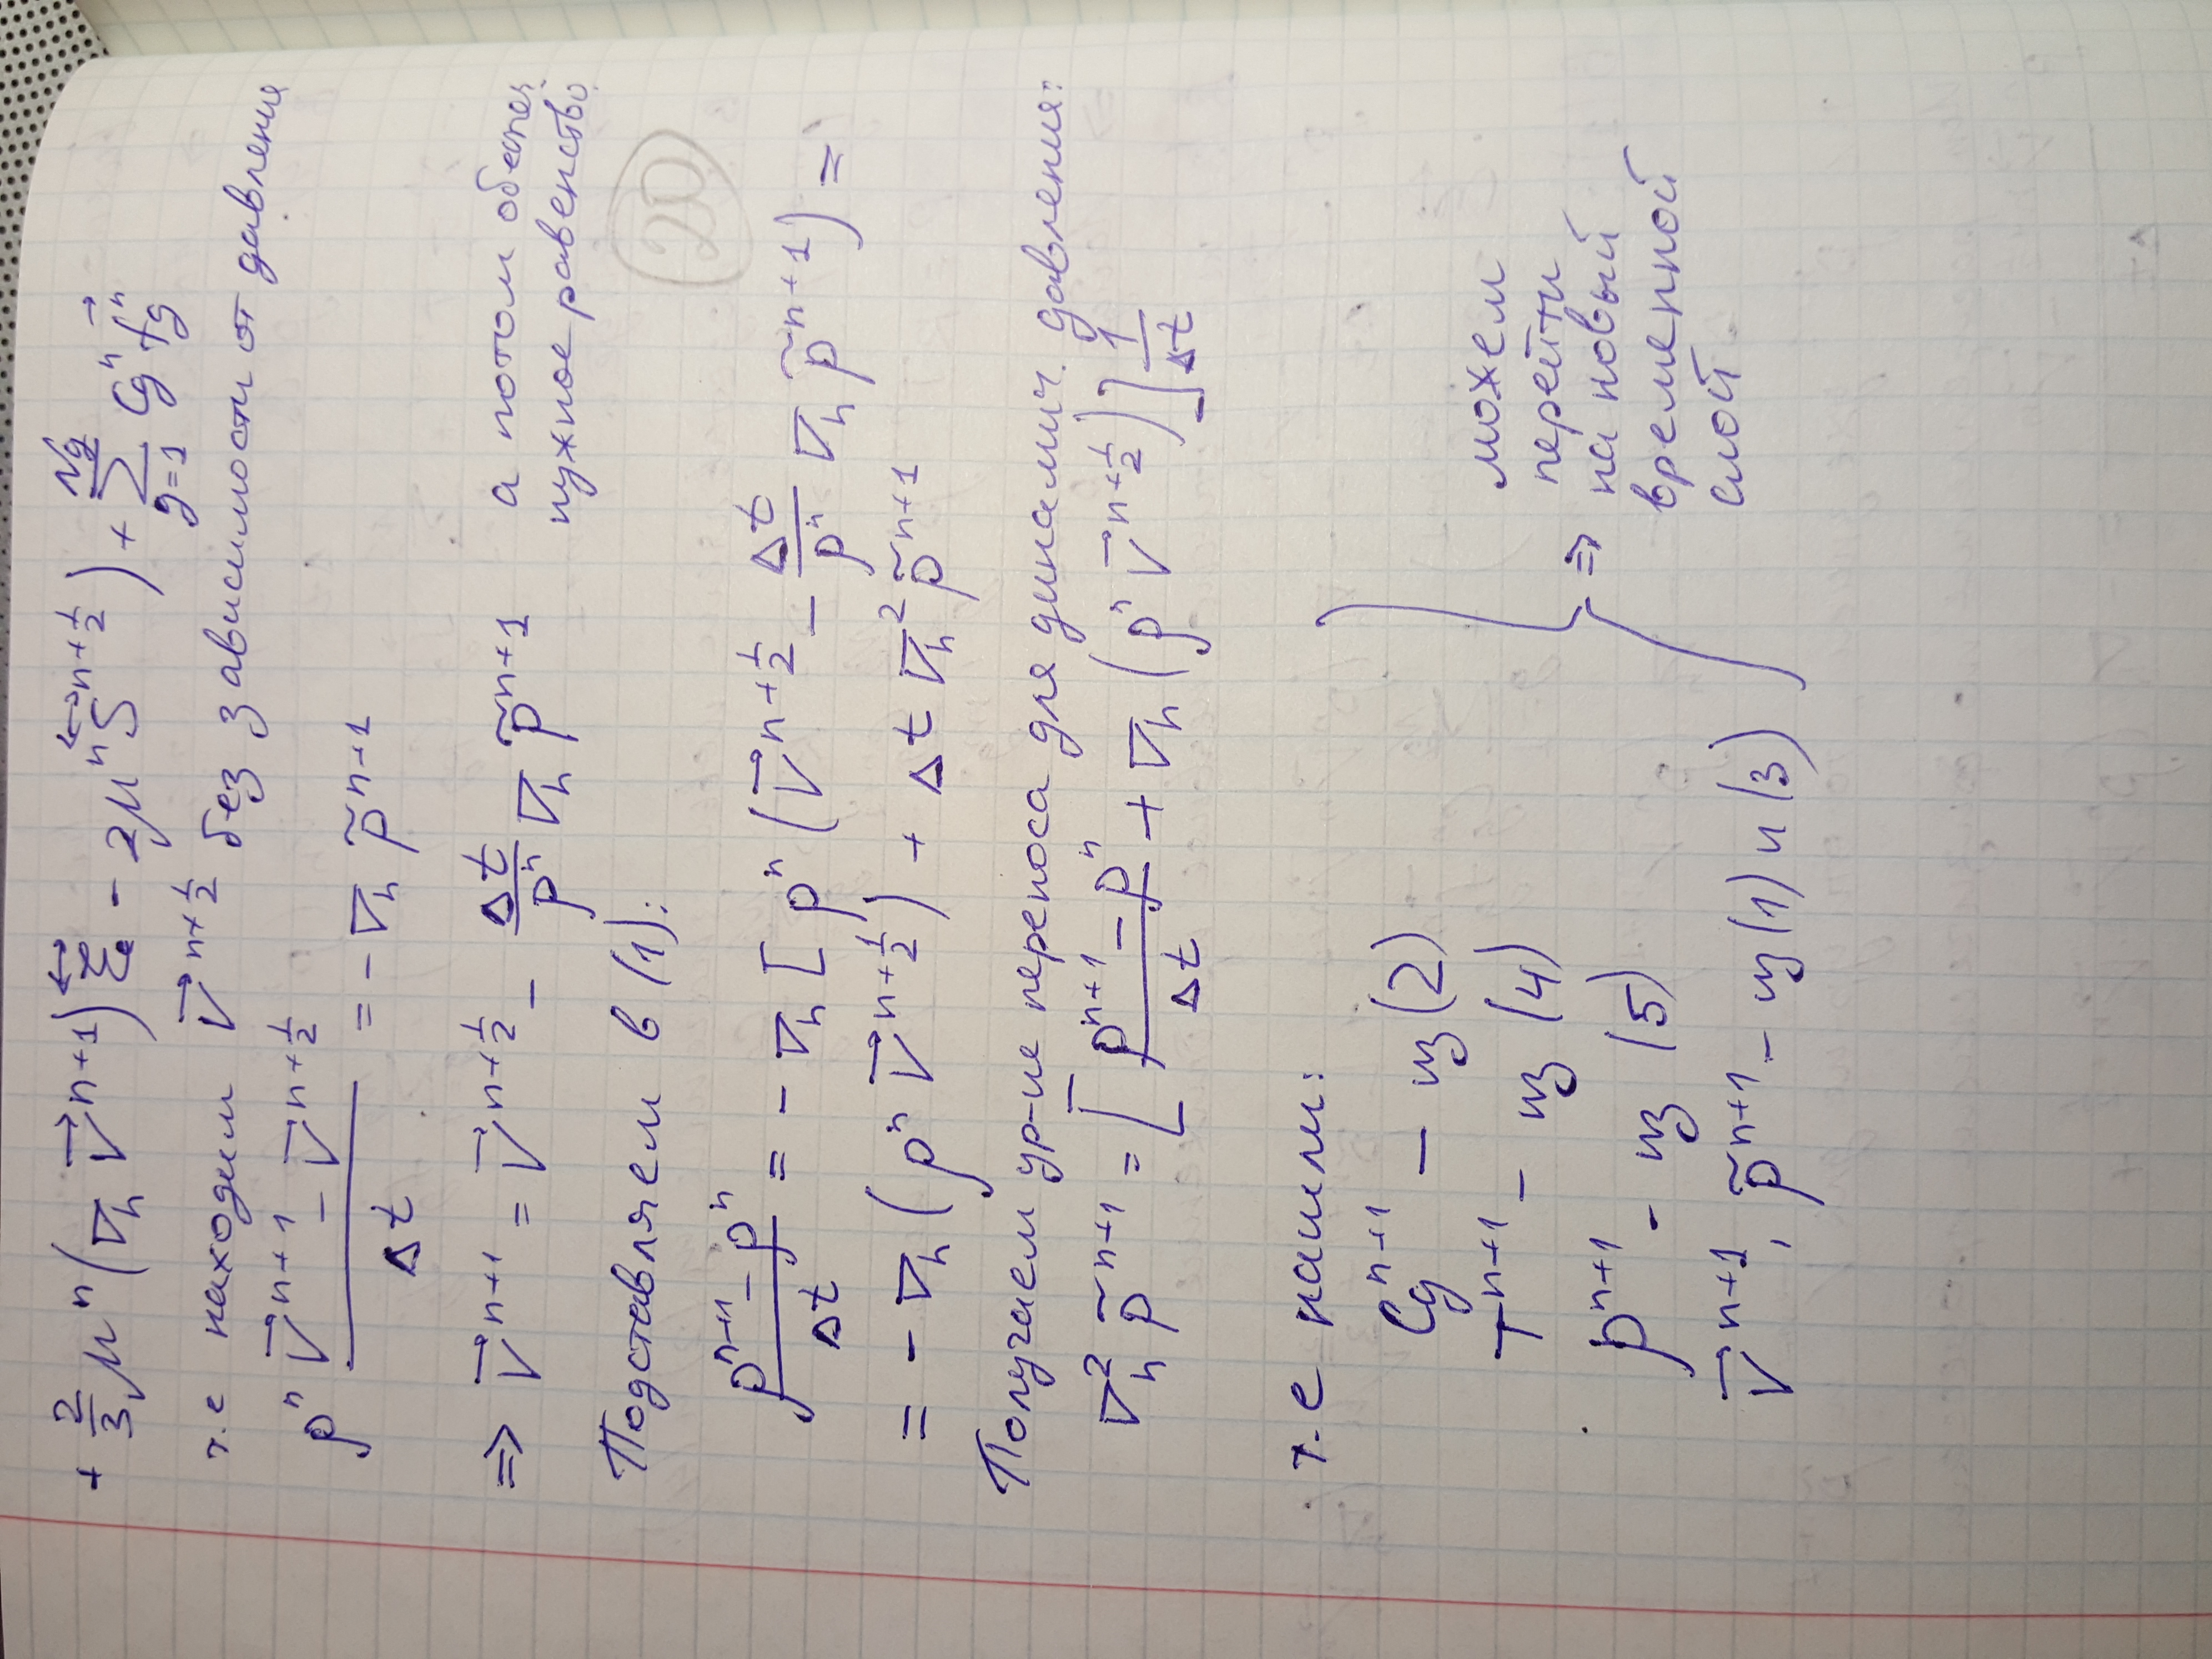 + 2/3 μⁿ (∇ₕ V⃗ⁿ⁺¹) ξ⃡ - 2μⁿ S⃡ⁿ⁺¹ᐟ²) + Σ_{g=1}^{Ng} Cgⁿ f⃗gⁿ
т.е находим V⃗ⁿ⁺¹ᐟ² без зависимости от давления
ρⁿ (V⃗ⁿ⁺¹ - V⃗ⁿ⁺¹ᐟ²)/Δt = -∇ₕ p̃ⁿ⁺¹
⇒ V⃗ⁿ⁺¹ = V⃗ⁿ⁺¹ᐟ² - Δt/ρⁿ ∇ₕ p̃ⁿ⁺¹ а потом обеспеч.
нужное равенство
Подставляем в (1):
20
(ρⁿ⁺¹ - ρⁿ)/Δt = - ∇ₕ [ρⁿ (V⃗ⁿ⁺¹ᐟ² - Δt/ρⁿ ∇ₕ p̃ⁿ⁺¹) =
= - ∇ₕ (ρⁿ V⃗ⁿ⁺¹ᐟ²) + Δt ∇ₕ² p̃ⁿ⁺¹
Получаем ур-ие переноса для динамич. давления:
∇ₕ² p̃ⁿ⁺¹ = [(ρⁿ⁺¹ - ρⁿ)/Δt + ∇ₕ (ρⁿ V⃗ⁿ⁺¹ᐟ²)] 1/Δt
т.е нашли:
Cgⁿ⁺¹ - из (2)
Tⁿ⁺¹ - из (4)
ρⁿ⁺¹ - из (5)
V⃗ⁿ⁺¹, p̃ⁿ⁺¹ - из (1) и (3)
⇒ можем
перейти
на новый
временной
слой.